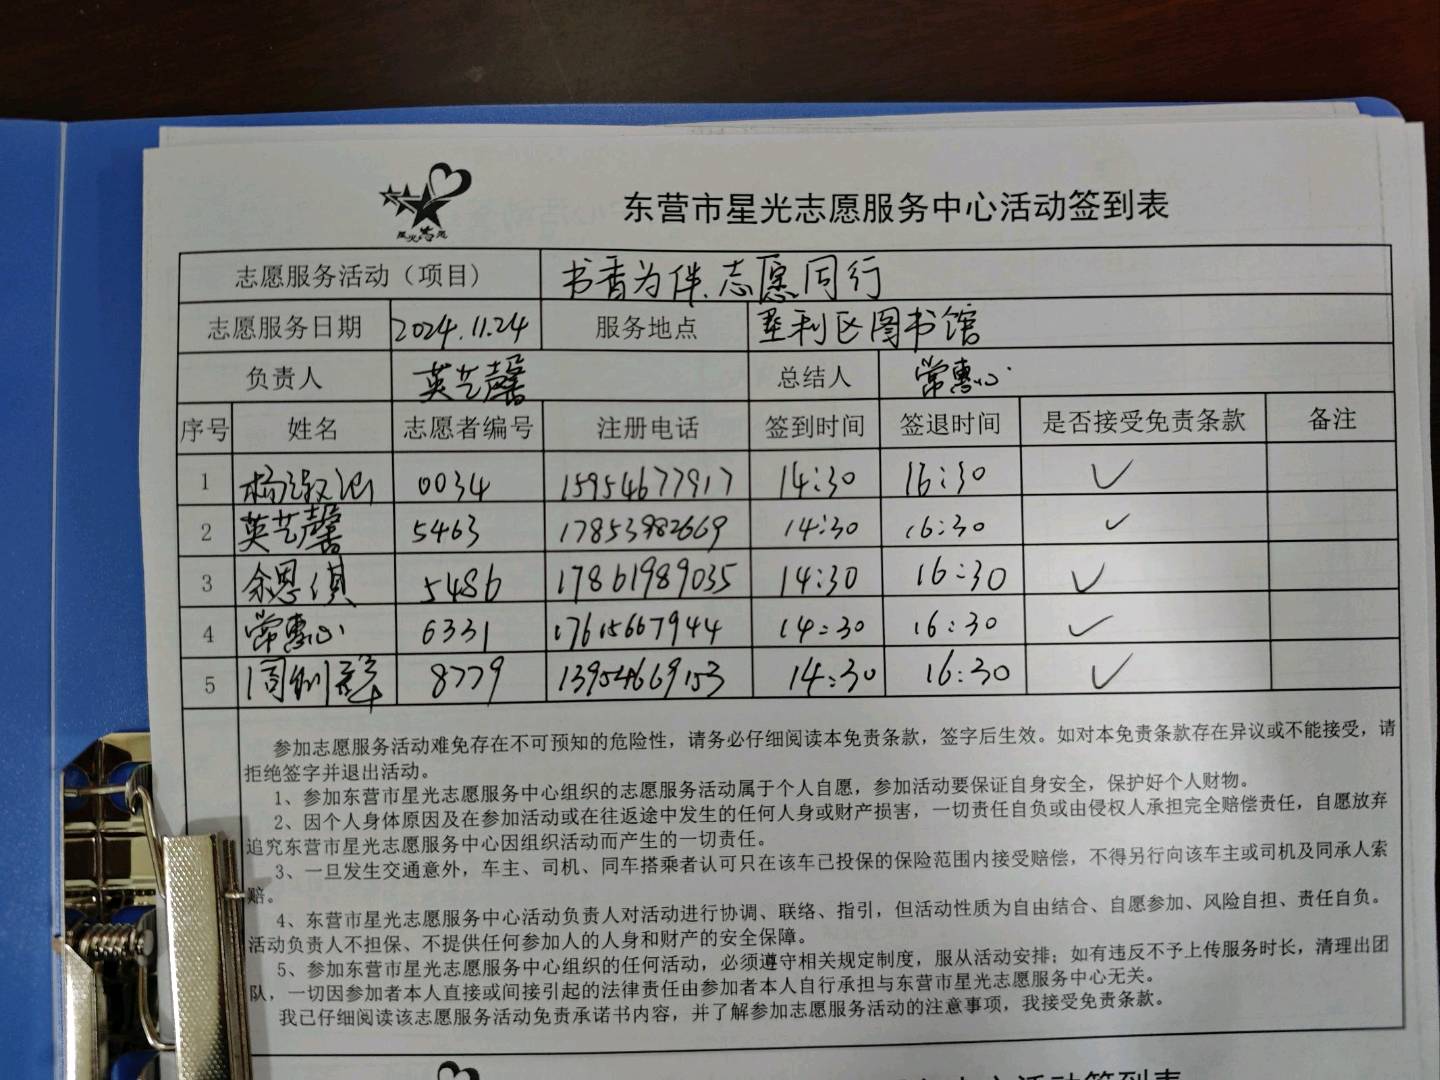 星光志愿
东营市星光志愿服务中心活动签到表
志愿服务活动（项目） 书香为伴、志愿同行
志愿服务日期 2024.11.24 服务地点 垦利区图书馆
负责人 英艺馨 总结人 常惠心
序号 姓名 志愿者编号 注册电话 签到时间 签退时间 是否接受免责条款 备注
1 0034 15954677917 14:30 16:30 ✓
2 英艺馨 5463 17853982669 14:30 16:30 ✓
3 余恩淇 5486 17861989035 14:30 16:30 ✓
4 常惠心 6331 17615667944 14:30 16:30 ✓
5 8779 13954669153 14:30 16:30 ✓
参加志愿服务活动难免存在不可预知的危险性，请务必仔细阅读本免责条款，签字后生效。如对本免责条款存在异议或不能接受，请
拒绝签字并退出活动。
1、参加东营市星光志愿服务中心组织的志愿服务活动属于个人自愿，参加活动要保证自身安全，保护好个人财物。
2、因个人身体原因及在参加活动或在往返途中发生的任何人身或财产损害，一切责任自负或由侵权人承担完全赔偿责任，自愿放弃
追究东营市星光志愿服务中心因组织活动而产生的一切责任。
3、一旦发生交通意外，车主、司机、同车搭乘者认可只在该车已投保的保险范围内接受赔偿，不得另行向该车主或司机及同承人索
赔。
4、东营市星光志愿服务中心活动负责人对活动进行协调、联络、指引，但活动性质为自由结合、自愿参加、风险自担、责任自负。
活动负责人不担保、不提供任何参加人的人身和财产的安全保障。
5、参加东营市星光志愿服务中心组织的任何活动，必须遵守相关规定制度，服从活动安排；如有违反不予上传服务时长，清理出团
队，一切因参加者本人直接或间接引起的法律责任由参加者本人自行承担与东营市星光志愿服务中心无关。
我已仔细阅读该志愿服务活动免责承诺书内容，并了解参加志愿服务活动的注意事项，我接受免责条款。